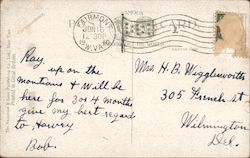 FAIRMONT
JUN 16
12 30 PM
W.VA.
CARD
Ray, up on the
montians & will be
here for 3 or 4 months
give my best regards
to Harvey
Bob.
Mrs H. B. Wigglesworth
305 French st
Wilmington
Del.